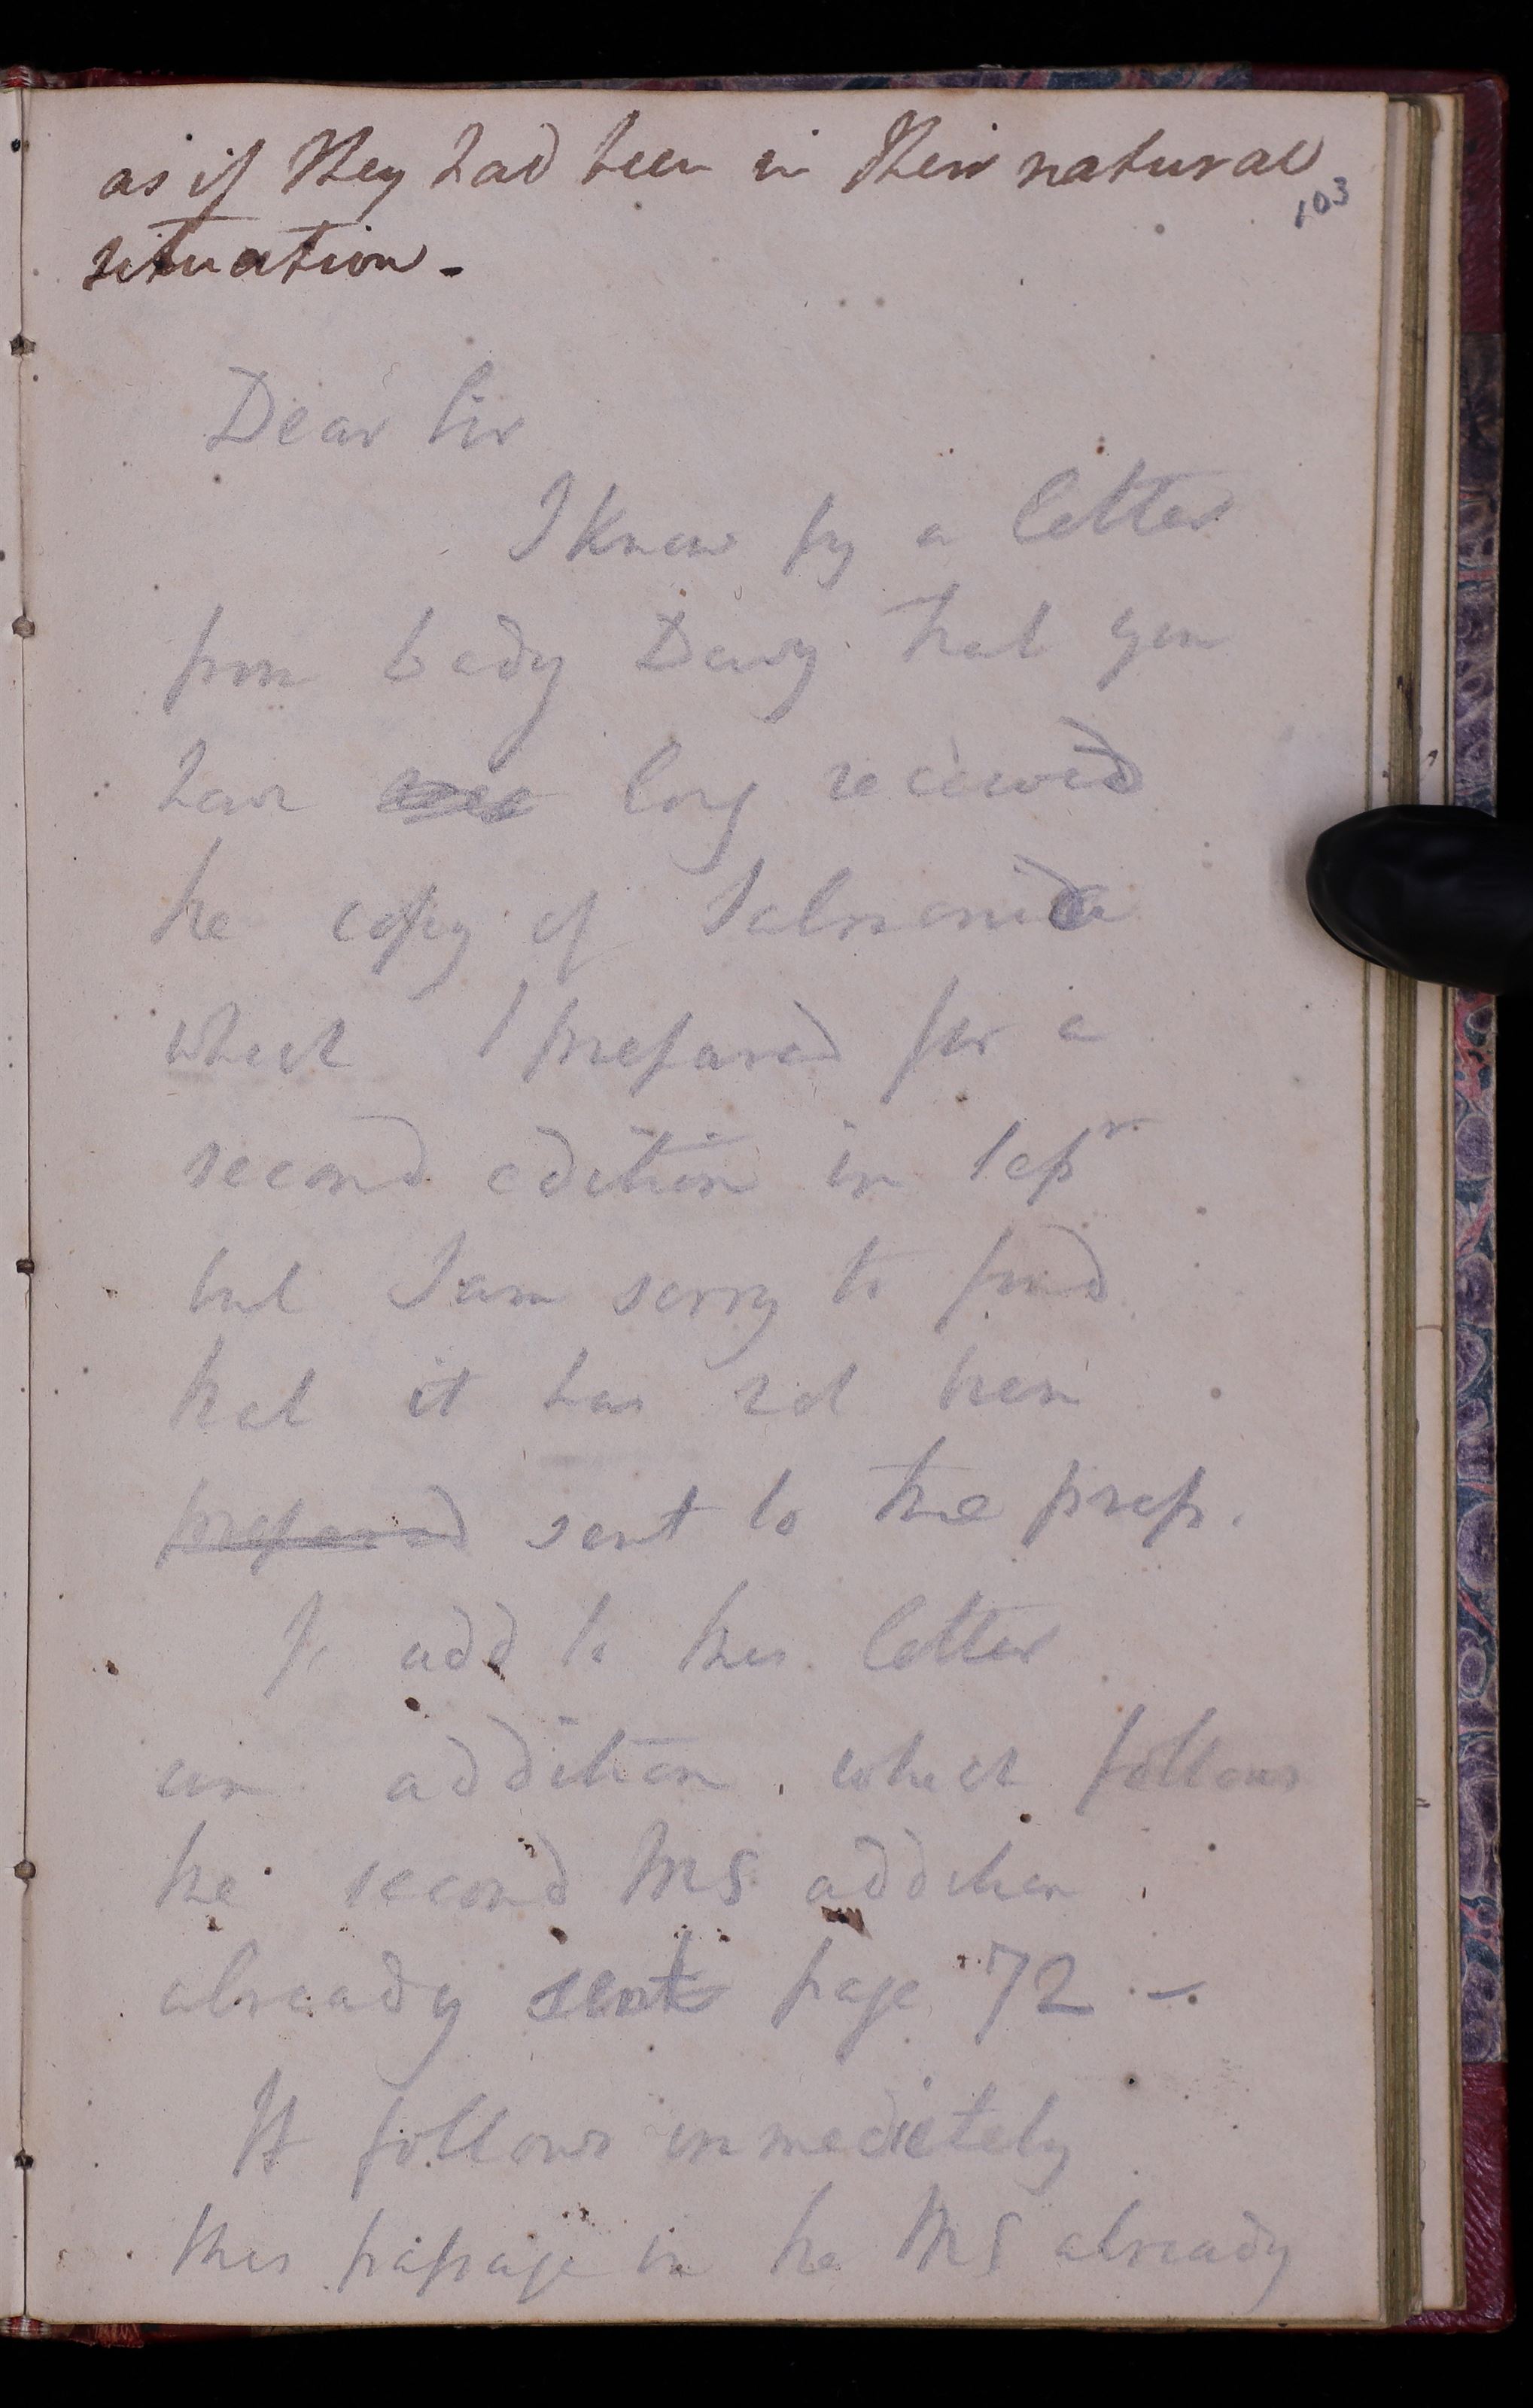 as if they had been in their natural
103
situation. -
Dear Sir
I know by a letter
from Lady Davy that you
have long recieved
the copy of Salmonia
which I prepared for a
second edition in Sepr
but I am sorry to find
that it has not been
prepared sent to the press.
I add to this letter
an addition which follows
the second MS addition
already sent page 72 -
It follows immedietely
this passage in the MS already